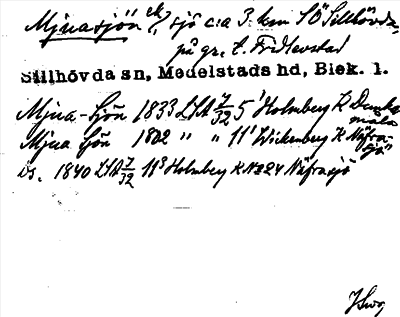 Mjuasjön ek, sjö c:a 3. km SÖ Sillhövda,
på gr. t. Fridlevstad
Sillhövda sn, Medelstads hd, Blek. 1.
Mjua-Sjön 1833 LSA 7/32 5¹ Holmberg K Dunkamåla
Mjua Sjön 1802 " " 11¹ Wickenberg K Näfrasjö
Ds. 1840 LSA 7/32 11³ Holmberg K N:o 24 Näfrasjö